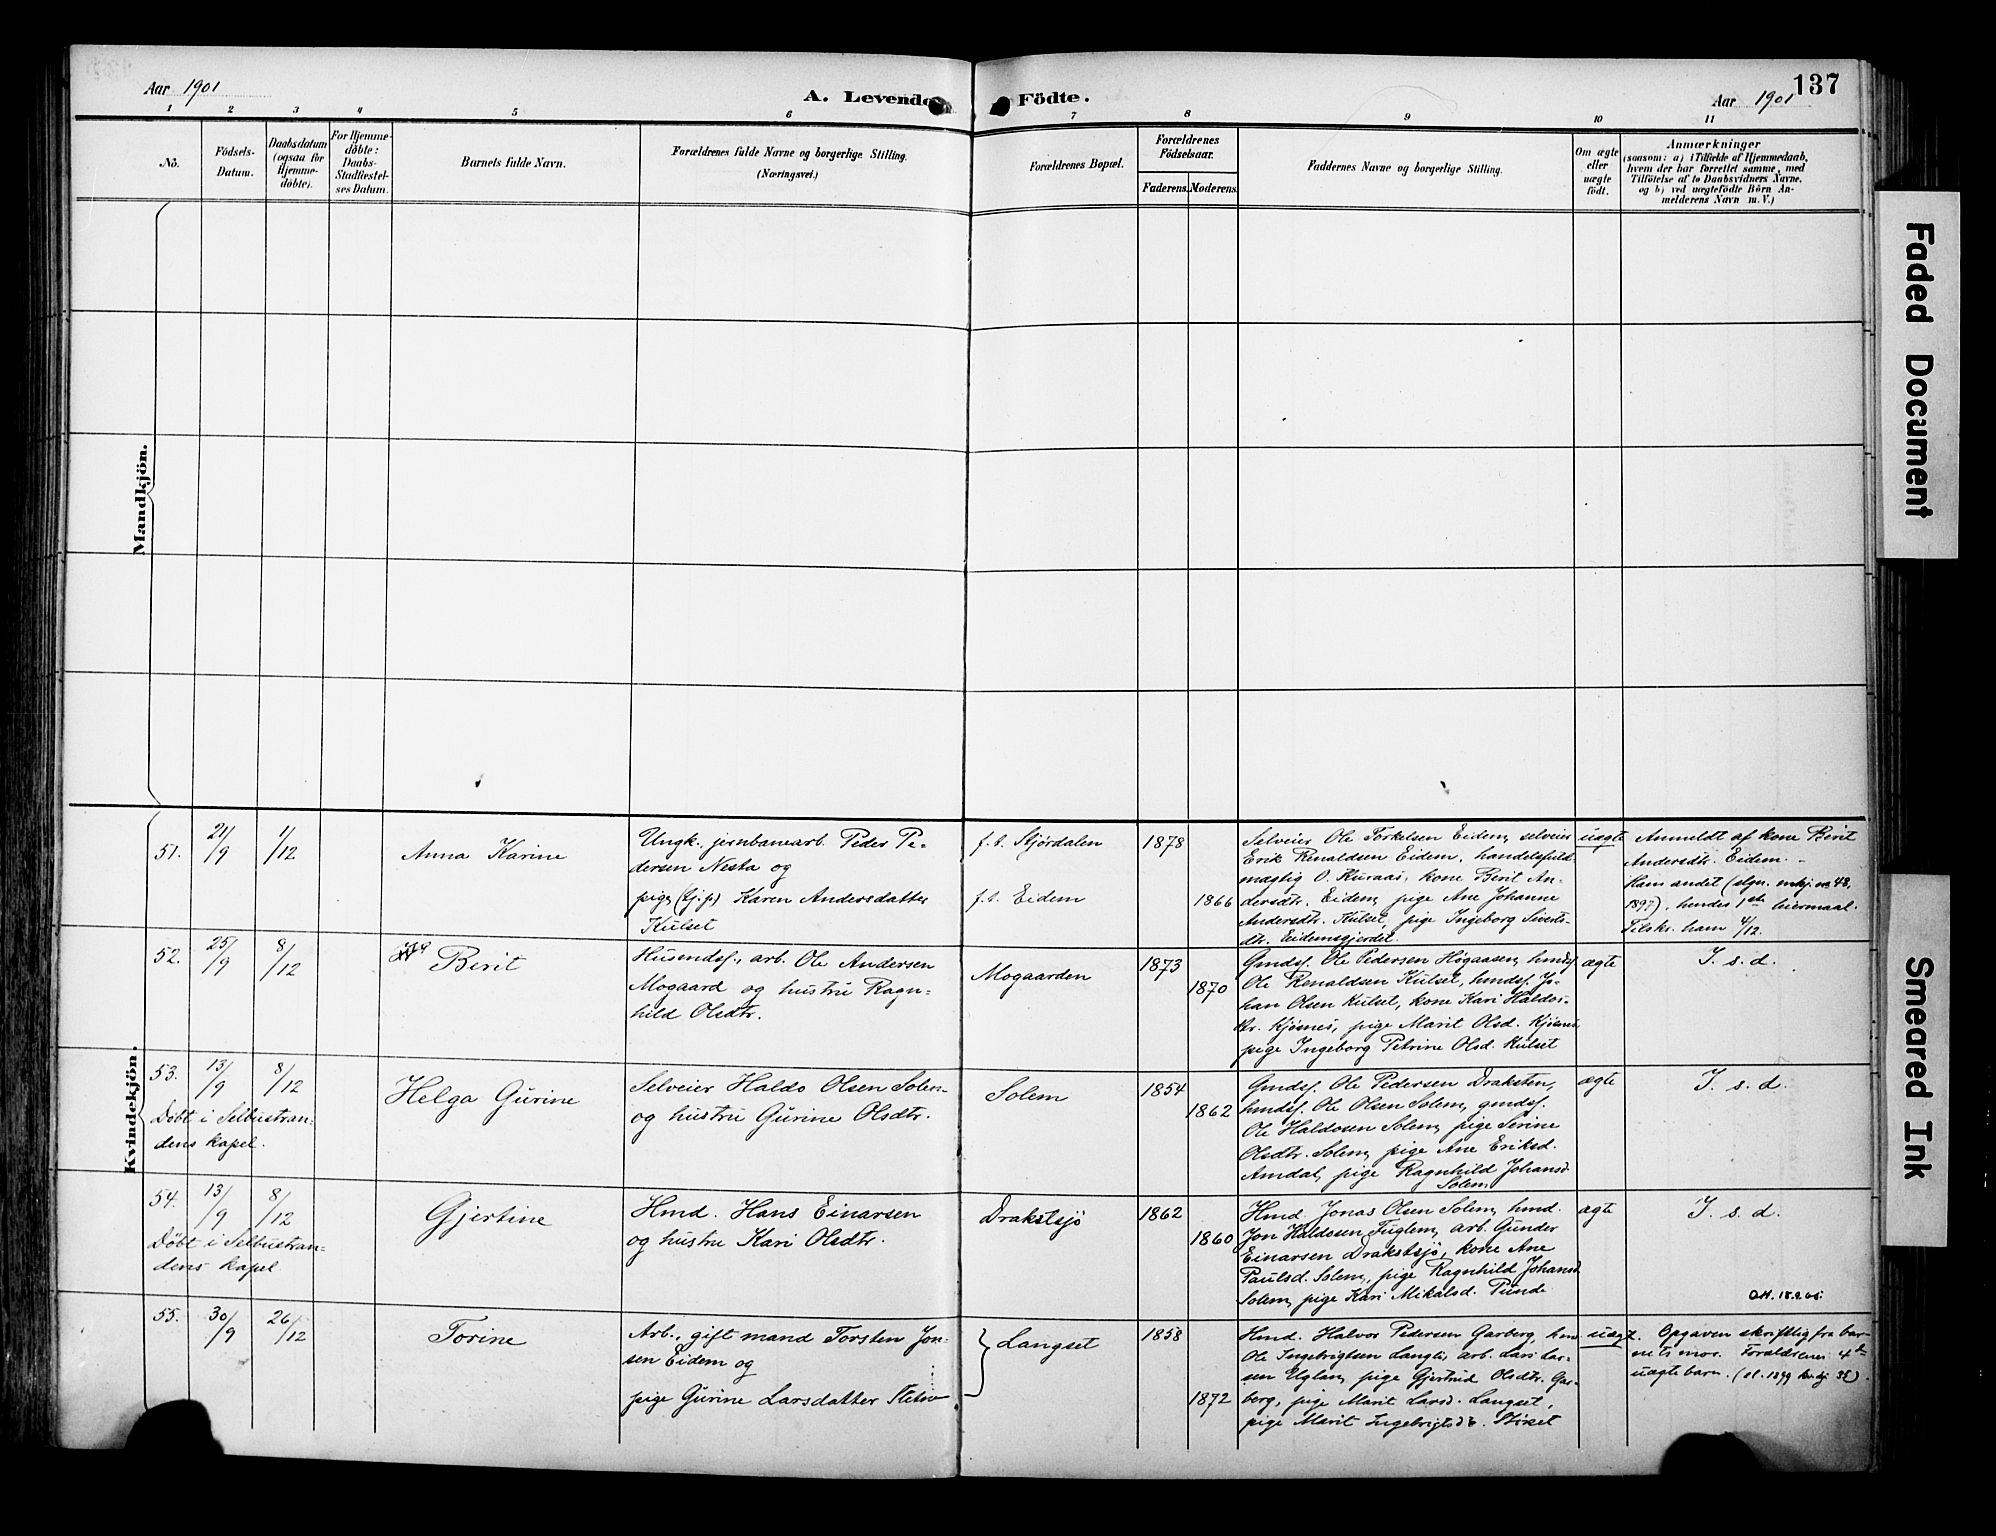 137
Aar 1901
A. Levende Födte.
Aar 1901
1 2 3 4 5 6 7 8 9 10 11
No.
Födsels-
Datum.
Daabsdatum
(ogsaa for
Hjemme-
döbte).
For Hjemme-
döbte:
Daabs-
Stadfæstel-
ses Datum.
Barnets fulde Navn.
Forældrenes fulde Navne og borgerlige Stilling.
(Næringsvei.)
Forældrenes Bopæl.
Forældrenes
Födselsaar.
Faderens. Moderens.
Faddernes Navne og borgerlige Stilling.
Om ægte
eller
uægte
födt.
Anmærkninger
(saasom: a) i Tilfælde af Hjemmedaab,
hvem der har forrettet samme, med
Tilföielse af to Daabsvidners Navne,
og b) ved uægtefödte Börn An-
melderens Navn m. V.)
Mandkjön.
Kvindekjön.
51.
21/9
1/12
Anna Karine
Ungk. jernbanearb. Peder Pe-
dersen Nesta og
pige (tj.p) Karen Andersdatter
Kulset
f. s. Stjørdalen
f. s. Eidem
1878
1866
Selveier Ole Torkelsen Eidem, selveier
Erik Renaldsen Eidem, handelsfuld-
mægtig O. Kuraas, kone Berit An-
dersdtr. Eidem, pige Ane Johanne
Andersdtr. Kulset, pige Ingeborg Siverts-
dtr. Eidemsgjerdet.
uægte
Anmeldt af kone Berit
Andersdtr. Eidem. -
Hans andet (slgn. mkj. no 48,
1897), hendes 1ste leiermaal.
Tilskr. ham 4/12.
52.
25/9
8/12
Berit
Husmdsf., arb. Ole Andersen
Mogaard og hustru Ragn-
hild Olsdtr.
Mogaarden
1873
1870
Gmdsf. Ole Pedersen Høgaasen, hmdsf.
Ole Renaldsen Kulset, hmdsf. Jo-
han Olsen Kulset, kone Kari Haldors-
dtr. Kjøsnes, pige Marit Olsd. Kjøsnes,
pige Ingeborg Petrine Olsd. Kulset
ægte
I. s. d.
53.
13/9
8/12
Døbt i Selbustran-
dens kapel.
Helga Gurine
Selveier Haldo Olsen Solem
og hustru Gurine Olsdtr.
Solem
1854
1862
Gmdsf. Ole Pedersen Draksten,
hmdsf. Ole Olsen Solem, gmdsf.
Ole Haldosen Solem, pige Serine
Olsdtr. Solem, pige Ane Eriksd.
Amdal, pige Ragnhild Johansd
Solem
ægte
I. s. d.
54.
13/9
8/12
Døbt i Selbustran-
dens kapel.
Gjertine
Hmd. Hans Einarsen
og hustru Kari Olsdtr.
Drakstsjø
1862
1860
Hmd. Jonas Olsen Solem, hmd.
Jon Haldosen Fuglem, arb. Gunder
Einarsen Drakstsjø, kone Ane
Paulsd. Solem, pige Ragnhild Johansd
Solem, pige Kari Mikalsd.
ægte
I. s. d.
55.
30/9
26/12
Torine
Arb., gift mand Torsten Jon-
sen Eidem og
pige Gurine Larsdatter
Langset
1858
1872
Hmd. Halvor Pedersen Garberg, hmd
Ole Ingebrigtsen Langli, arb. Lars Lar-
sen Uglan, pige Gjertrud Olsdtr. Gar-
berg, pige Marit Larsd. Langset,
pige Marit Ingebrigtsdtr.
uægt.
Opgaven skriftlig fra bar-
nets mor. Forældrenes 4de
uægte barn.
Faded Document
Smeared Ink